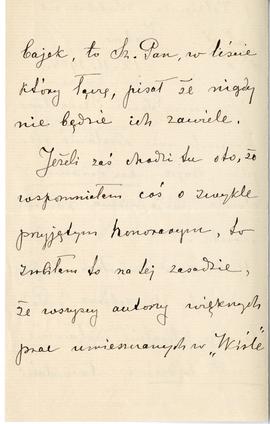 bajek, to Sz. Pan, w liście
który łączę, pisał że nigdy
nie będzie ich zawiele.
Jeżeli zaś chodzi tu oto, że
wspomniałam coś o zwykle
przyjętym honoraryum, to
zrobiłam to na tej zasadzie,
że wszyscy autorzy większych
prac umieszczanych w „Wiśle"